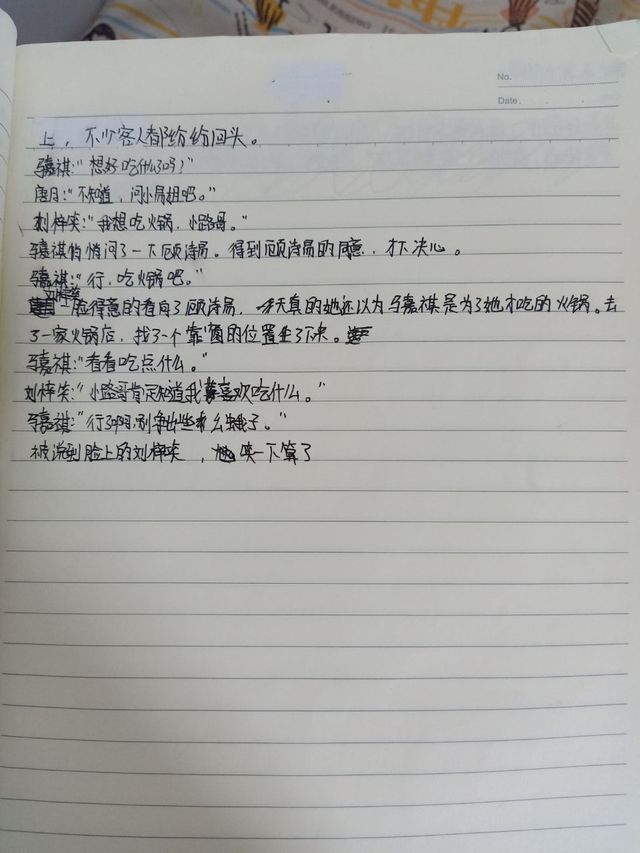 No.
Date.
上，不少客人都纷纷回头。
马嘉祺："想好吃什么了吗？"
唐月："不知道，问小易姐吧。"
刘梓笑："我想吃火锅，小路哥。"
马嘉祺悄悄问了一下顾诗易。得到顾诗易的同意，才下决心。
马嘉祺："行，吃火锅吧。"
刘梓笑
一脸得意的看向了顾诗易，天真的她还以为马嘉祺是为了她才吃的火锅。去
了一家火锅店，找了一个靠窗的位置坐了下来。
马嘉祺："看看吃点什么。"
刘梓笑："小路哥肯定知道我喜欢吃什么。"
马嘉祺："行了啊，别
被说到脸上的刘梓笑，笑一下算了